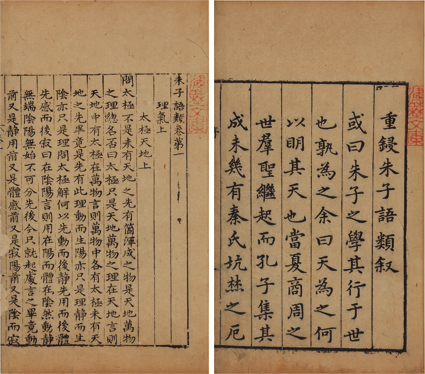 重鋟朱子語類叙
或曰朱子之學其行于世
也孰為之余曰天為之何
以明其天也當夏商周之
世羣聖繼起而孔子集其
成未幾有秦氏坑焚之厄
朱子語類卷第一
理氣上
太極天地上
問太極不是未有天地之先有箇渾成之物是天地萬物
之理總名否曰太極只是天地萬物之理在天地言則
天地中有太極在萬物言則萬物中各有太極未有天
地之先畢竟是先有此理動而生陽亦只是理靜而生
陰亦只是理問太極解何以先動而後靜先用而後體
先感而後寂曰在陰陽言則用在陽而體在陰然動靜
無端陰陽無始不可分先後今只就起處言之畢竟動
前又是靜用前又是體感前又是寂陽前又是陰而寂